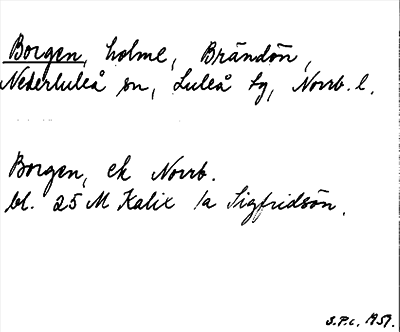 Borgen, holme, Brändön,
Nederluleå sn, Luleå tg, Norrb. l.
Borgen, ek Norrb.
bl. 25 M Kalix /a Sigfridsön.
S.P.c. 1951.